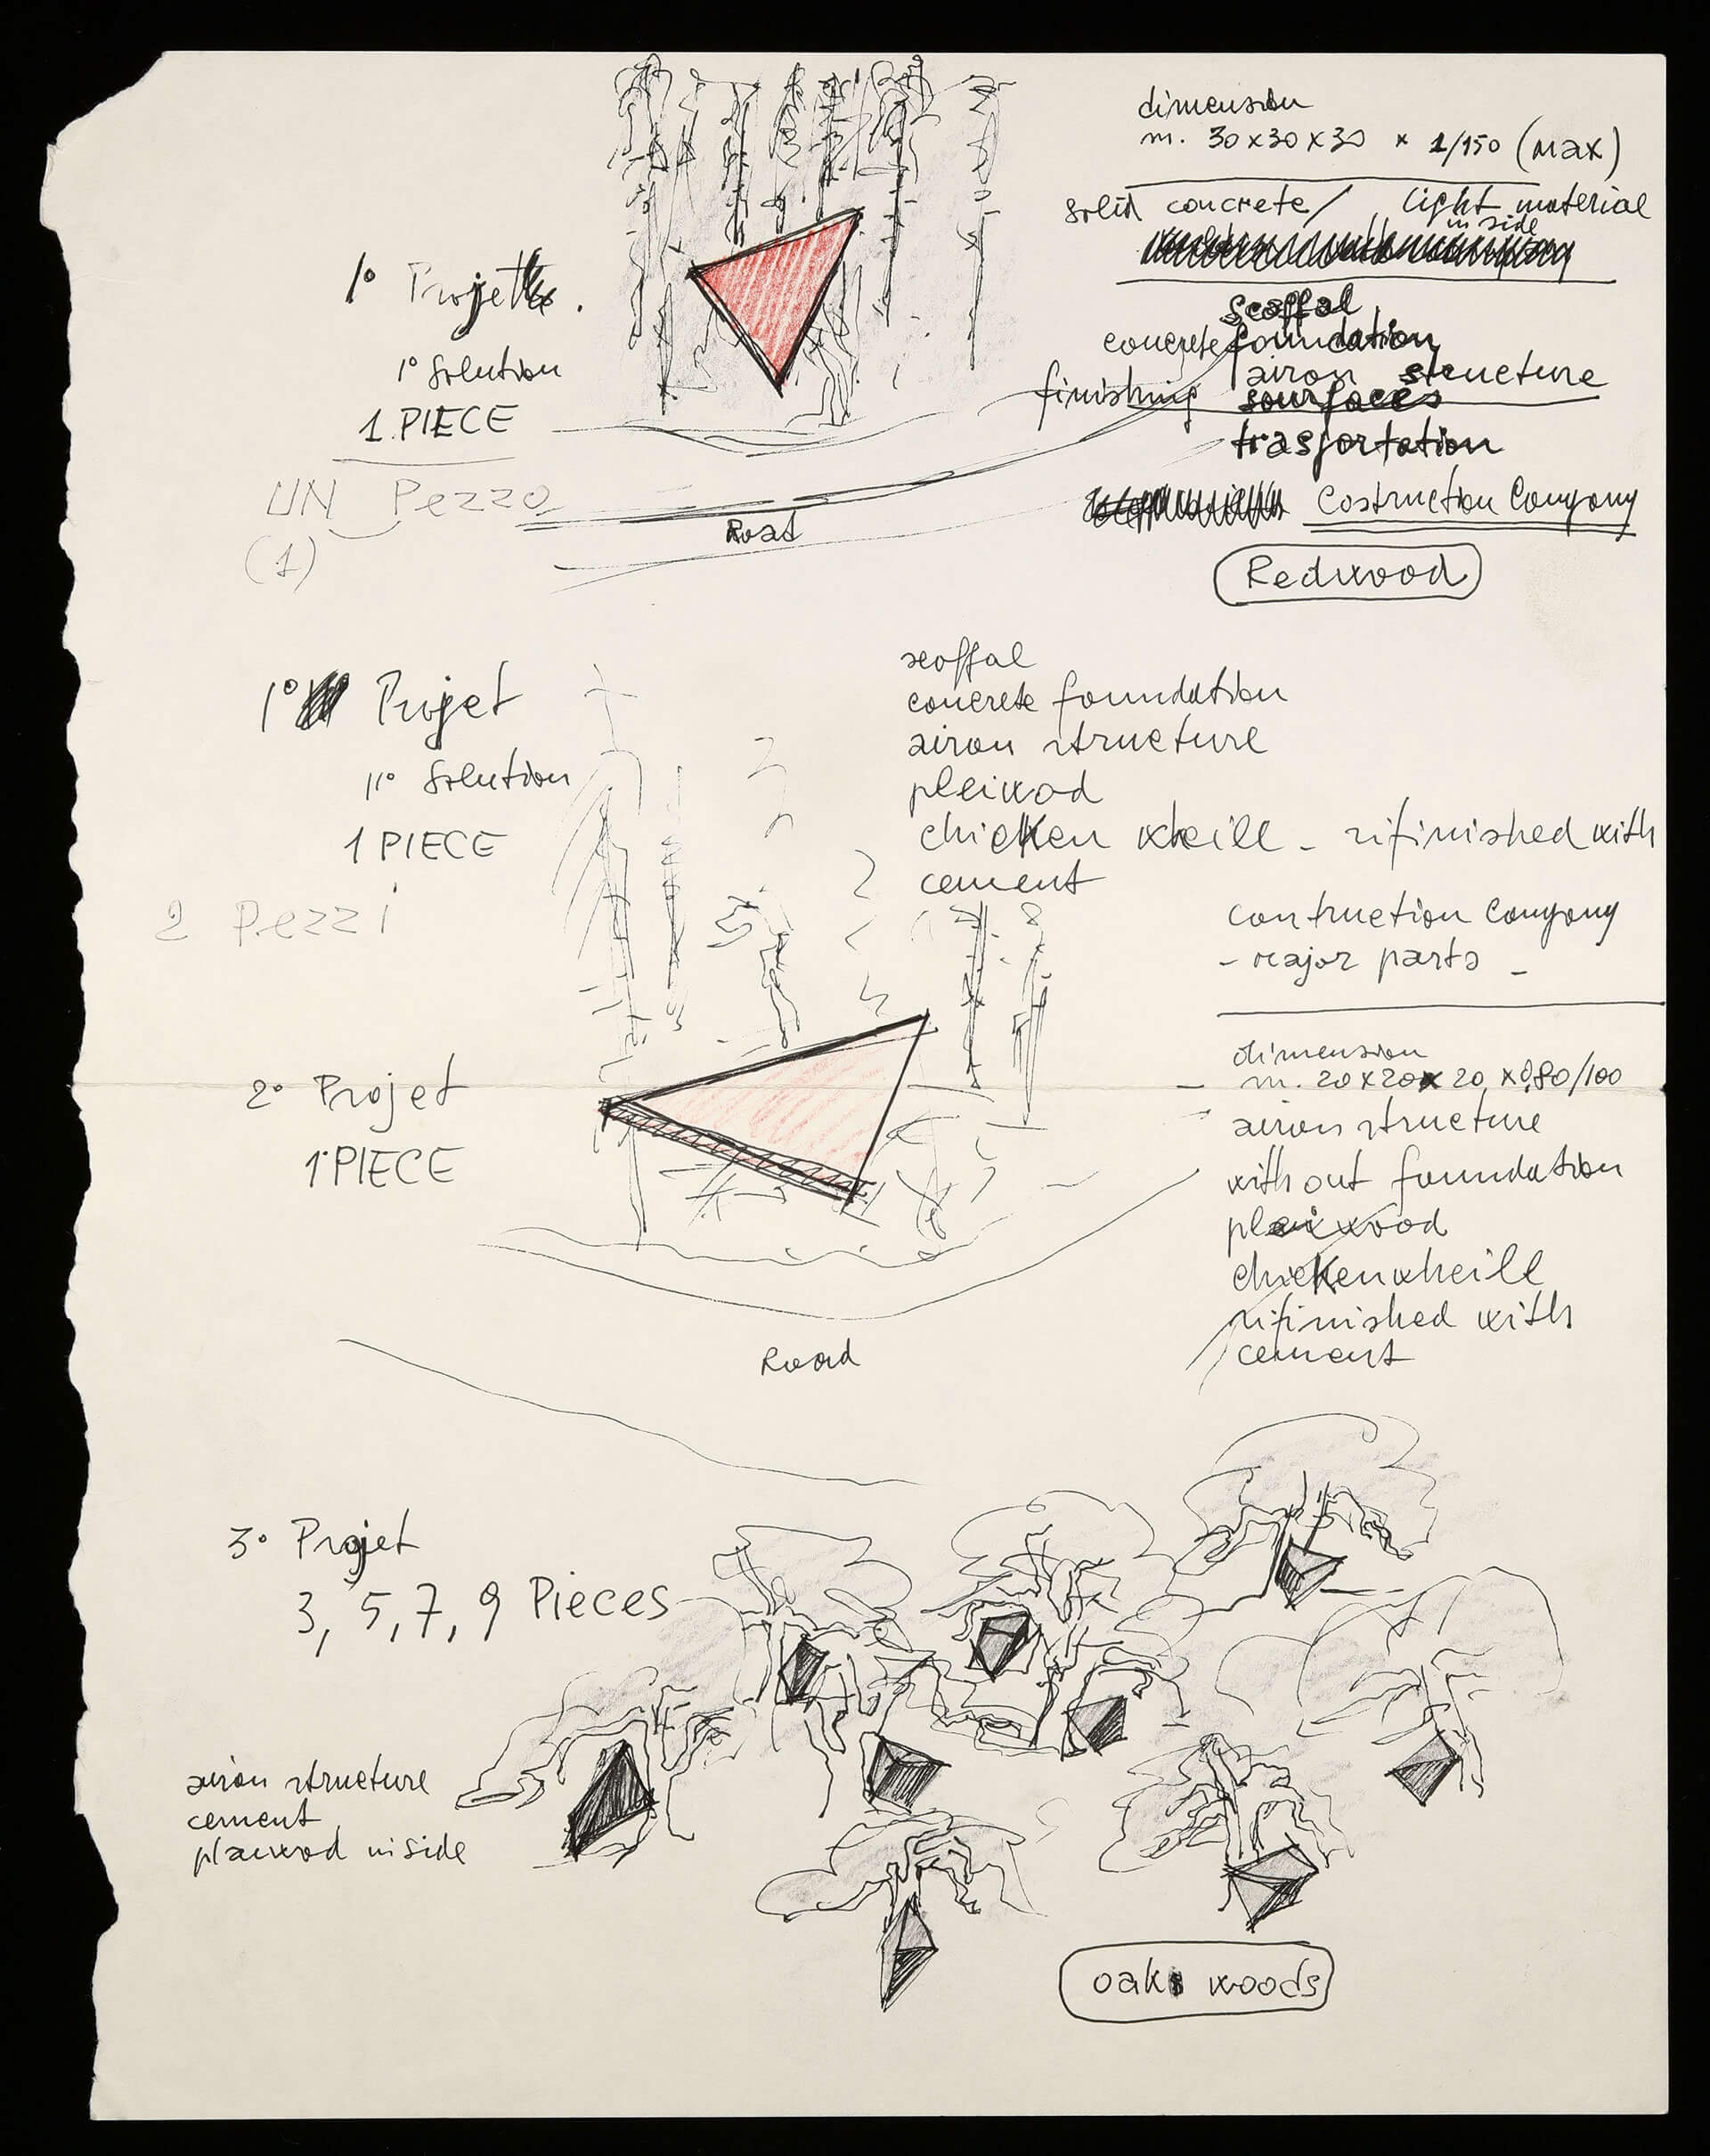 dimension
m. 30x30x30 x 1/150 (max)
solid concrete/ light material
in side
1° Projet
scaffal
concrete foundation
1° Solution
airon structure
finishing sourfaces
1. PIECE
trasportation
UN Pezzo
Costruction Company
Road
(1)
Redwood
scoffal
1° Projet
concrete foundation
airon structure
11° Solution
pleiwod
1 PIECE
chicken wheill - rifinished with
cement
2 Pezzi
contruction Company
- major parts -
dimension
2° Projet
m. 20x20x20 x0,80/100
airon structure
1 PIECE
with out foundation
pleiwood
chickenwheill
rifinished with
Road
cement
3° Projet
3, 5, 7, 9 Pieces
airon structure
cement
plaiwod inside
oak woods